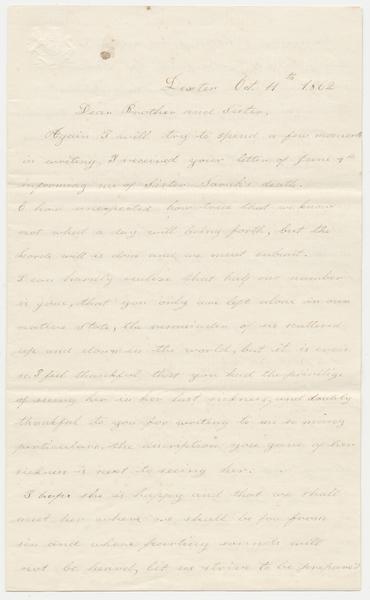 Dexter Oct. 11th 1862
Dear Brother and Sister,
Again I will try to spend a few moments
in writing, I received your letter of June 4th
informing me of Sister Sarah's death.
O how unexpected how true that we know
not what a day will bring forth, but the
Lords will is don and we must submit.
I can hardly realise that half our number
is gone, that you only are left alone in our
native State, the remainder of us scattered
up and down in the world, but it is even
so. I feel thankful that you had the privilige
of seeing her in her last sickness, and doubly
thankful to you for writing to me so many
particulars, the discription you gave of her
sickness is next to seeing her.
I hope she is happy and that we shall
meet her where we shall be free from
sin and where parting sounds will
not be heard, let us strive to be prepared